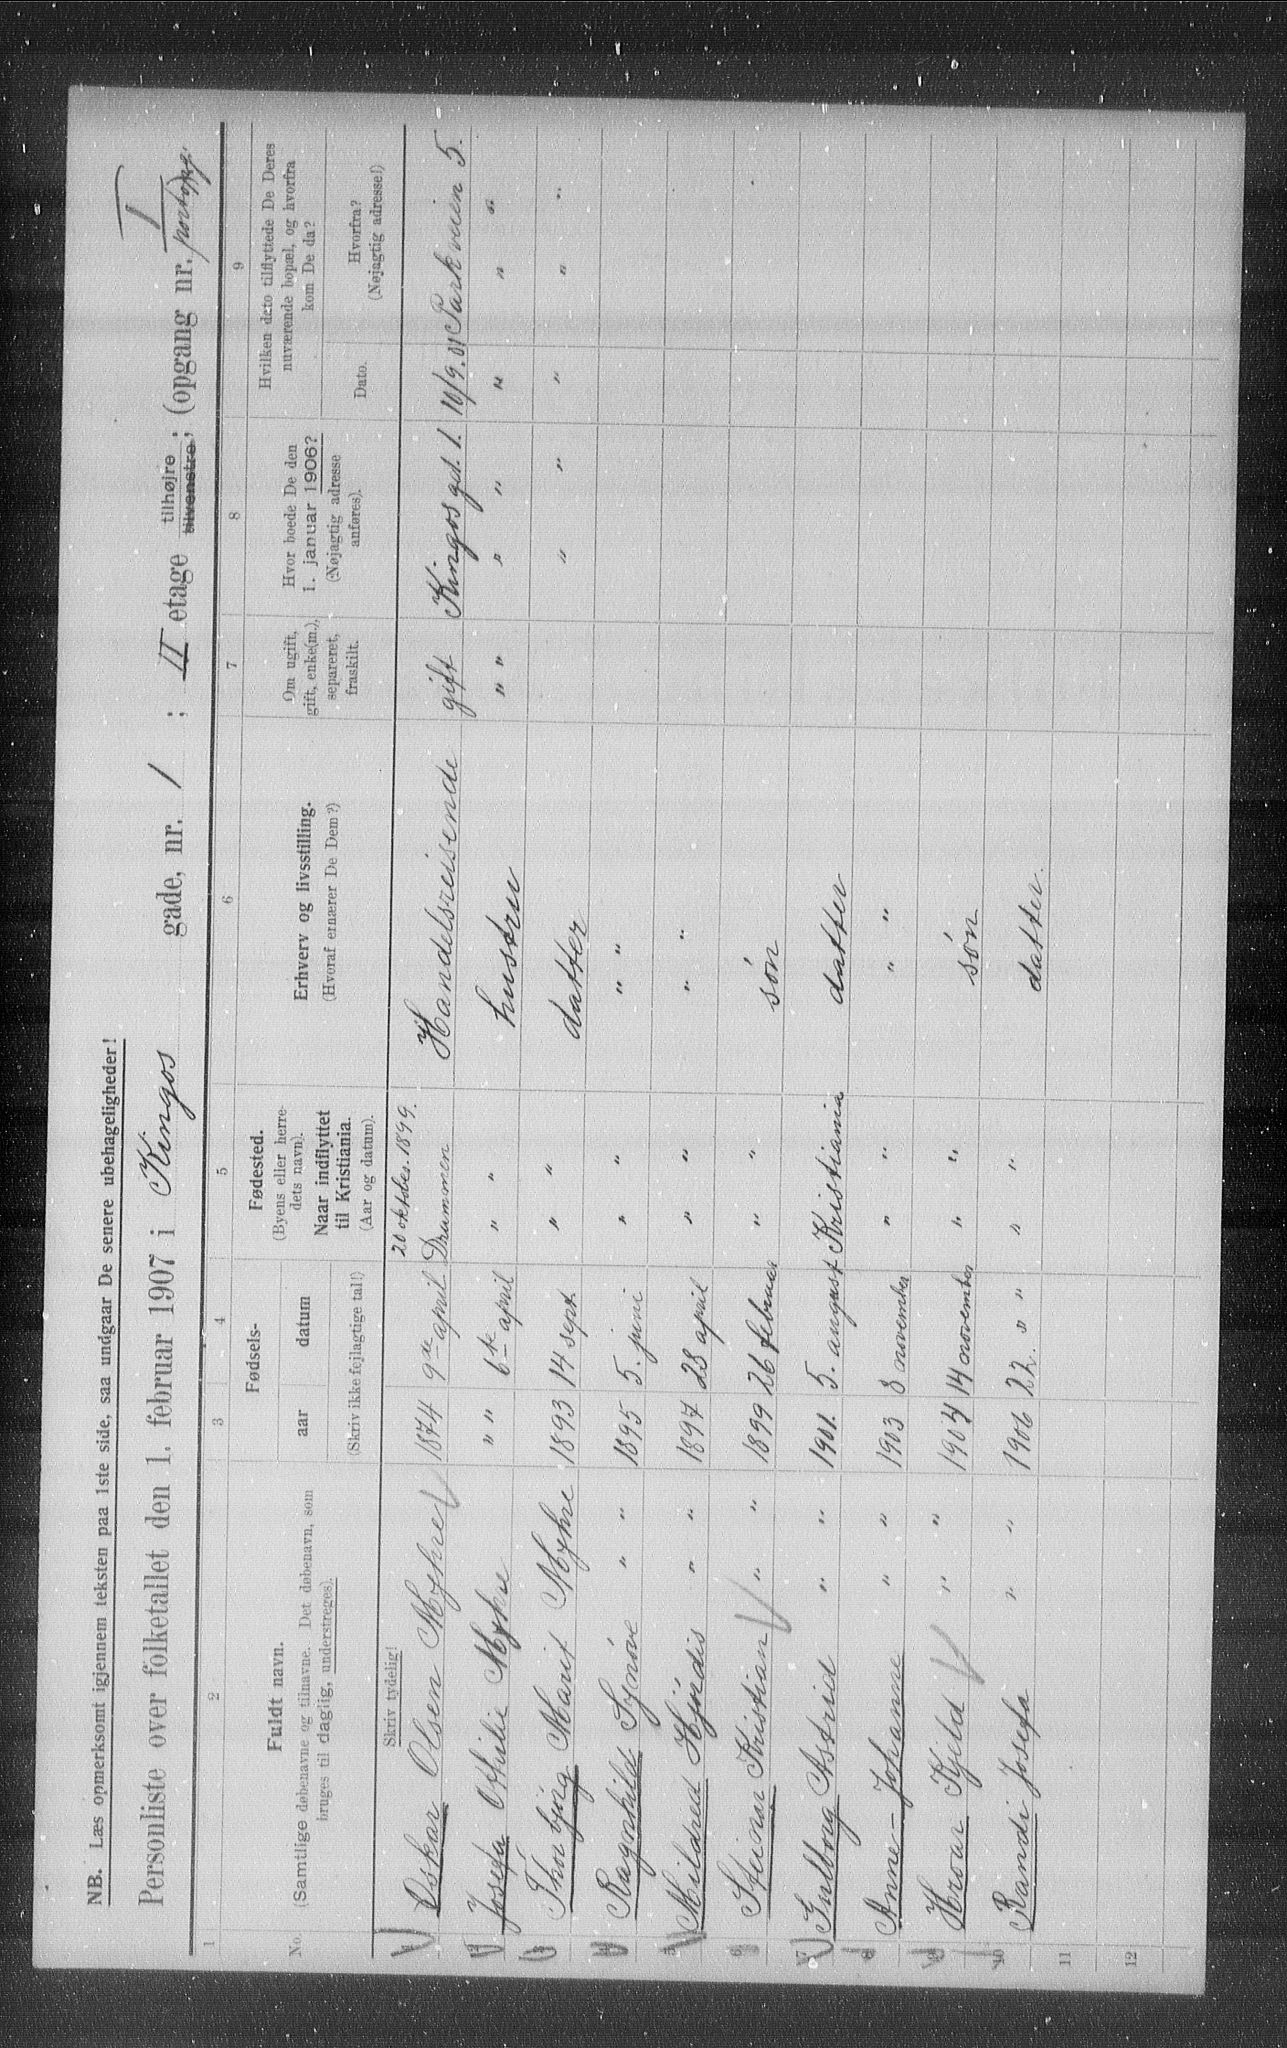 NB. Læs opmerksomt igjennem teksten paa 1ste side, saa undgaar De senere ubehageligheder!
I
Personliste over folketallet den 1. februar 1907 i Kingos gade, nr. 1; II etage tilhøjre tilvenstre; (opgang nr.
1 2 3 4 5 6 7 8 9
No. Fuldt navn. (Samtlige døbenavne og tilnavne. Det døbenavn, som bruges til daglig, understreges). Fødsels- aar datum (Skriv ikke fejlagtige tal!) Fødested. (Byens eller herredets navn). Naar indflyttet til Kristiania. (Aar og datum). Erhverv og livsstilling. (Hvoraf ernærer De Dem?) Om ugift, gift, enke(m.), separeret, fraskilt. Hvor boede De den 1. januar 1906? (Nøjagtig adresse anføres). Hvilken dato tilflyttede De Deres nuværende bopæl, og hvorfra kom De da? Dato. Hvorfra? (Nøjagtig adresse!)
Skriv tydelig! 20 oktober 1899.
1 Oskar Olsen Myhre 1874 9de april Drammen Handelsreisende gift Kingos gd. 1. 10/9.01 Parkveien 5.
2 Josefa Othilie Myhre " " 6te april " " hustru " " " " " " "
3 Thorbjørg Marit Myhre 1893 14 sept. " " datter " " " " "
4 Ragnhild Synøve " " 1895 5. juni " " " "
5 Mildred Hjördis " " 1897 23 april " " " "
6 Steinar Kristian " " 1899 26 februar " " søn
7 Gulborg Astrid " " 1901. 5. august Kristiania datter
8 Anne-Johanne " " 1903 8 november " " " "
9 Hroar Kjeld " " 1904 14 november " " søn
10 Randi Josefa " " 1906 22. " " " " datter.
11
12